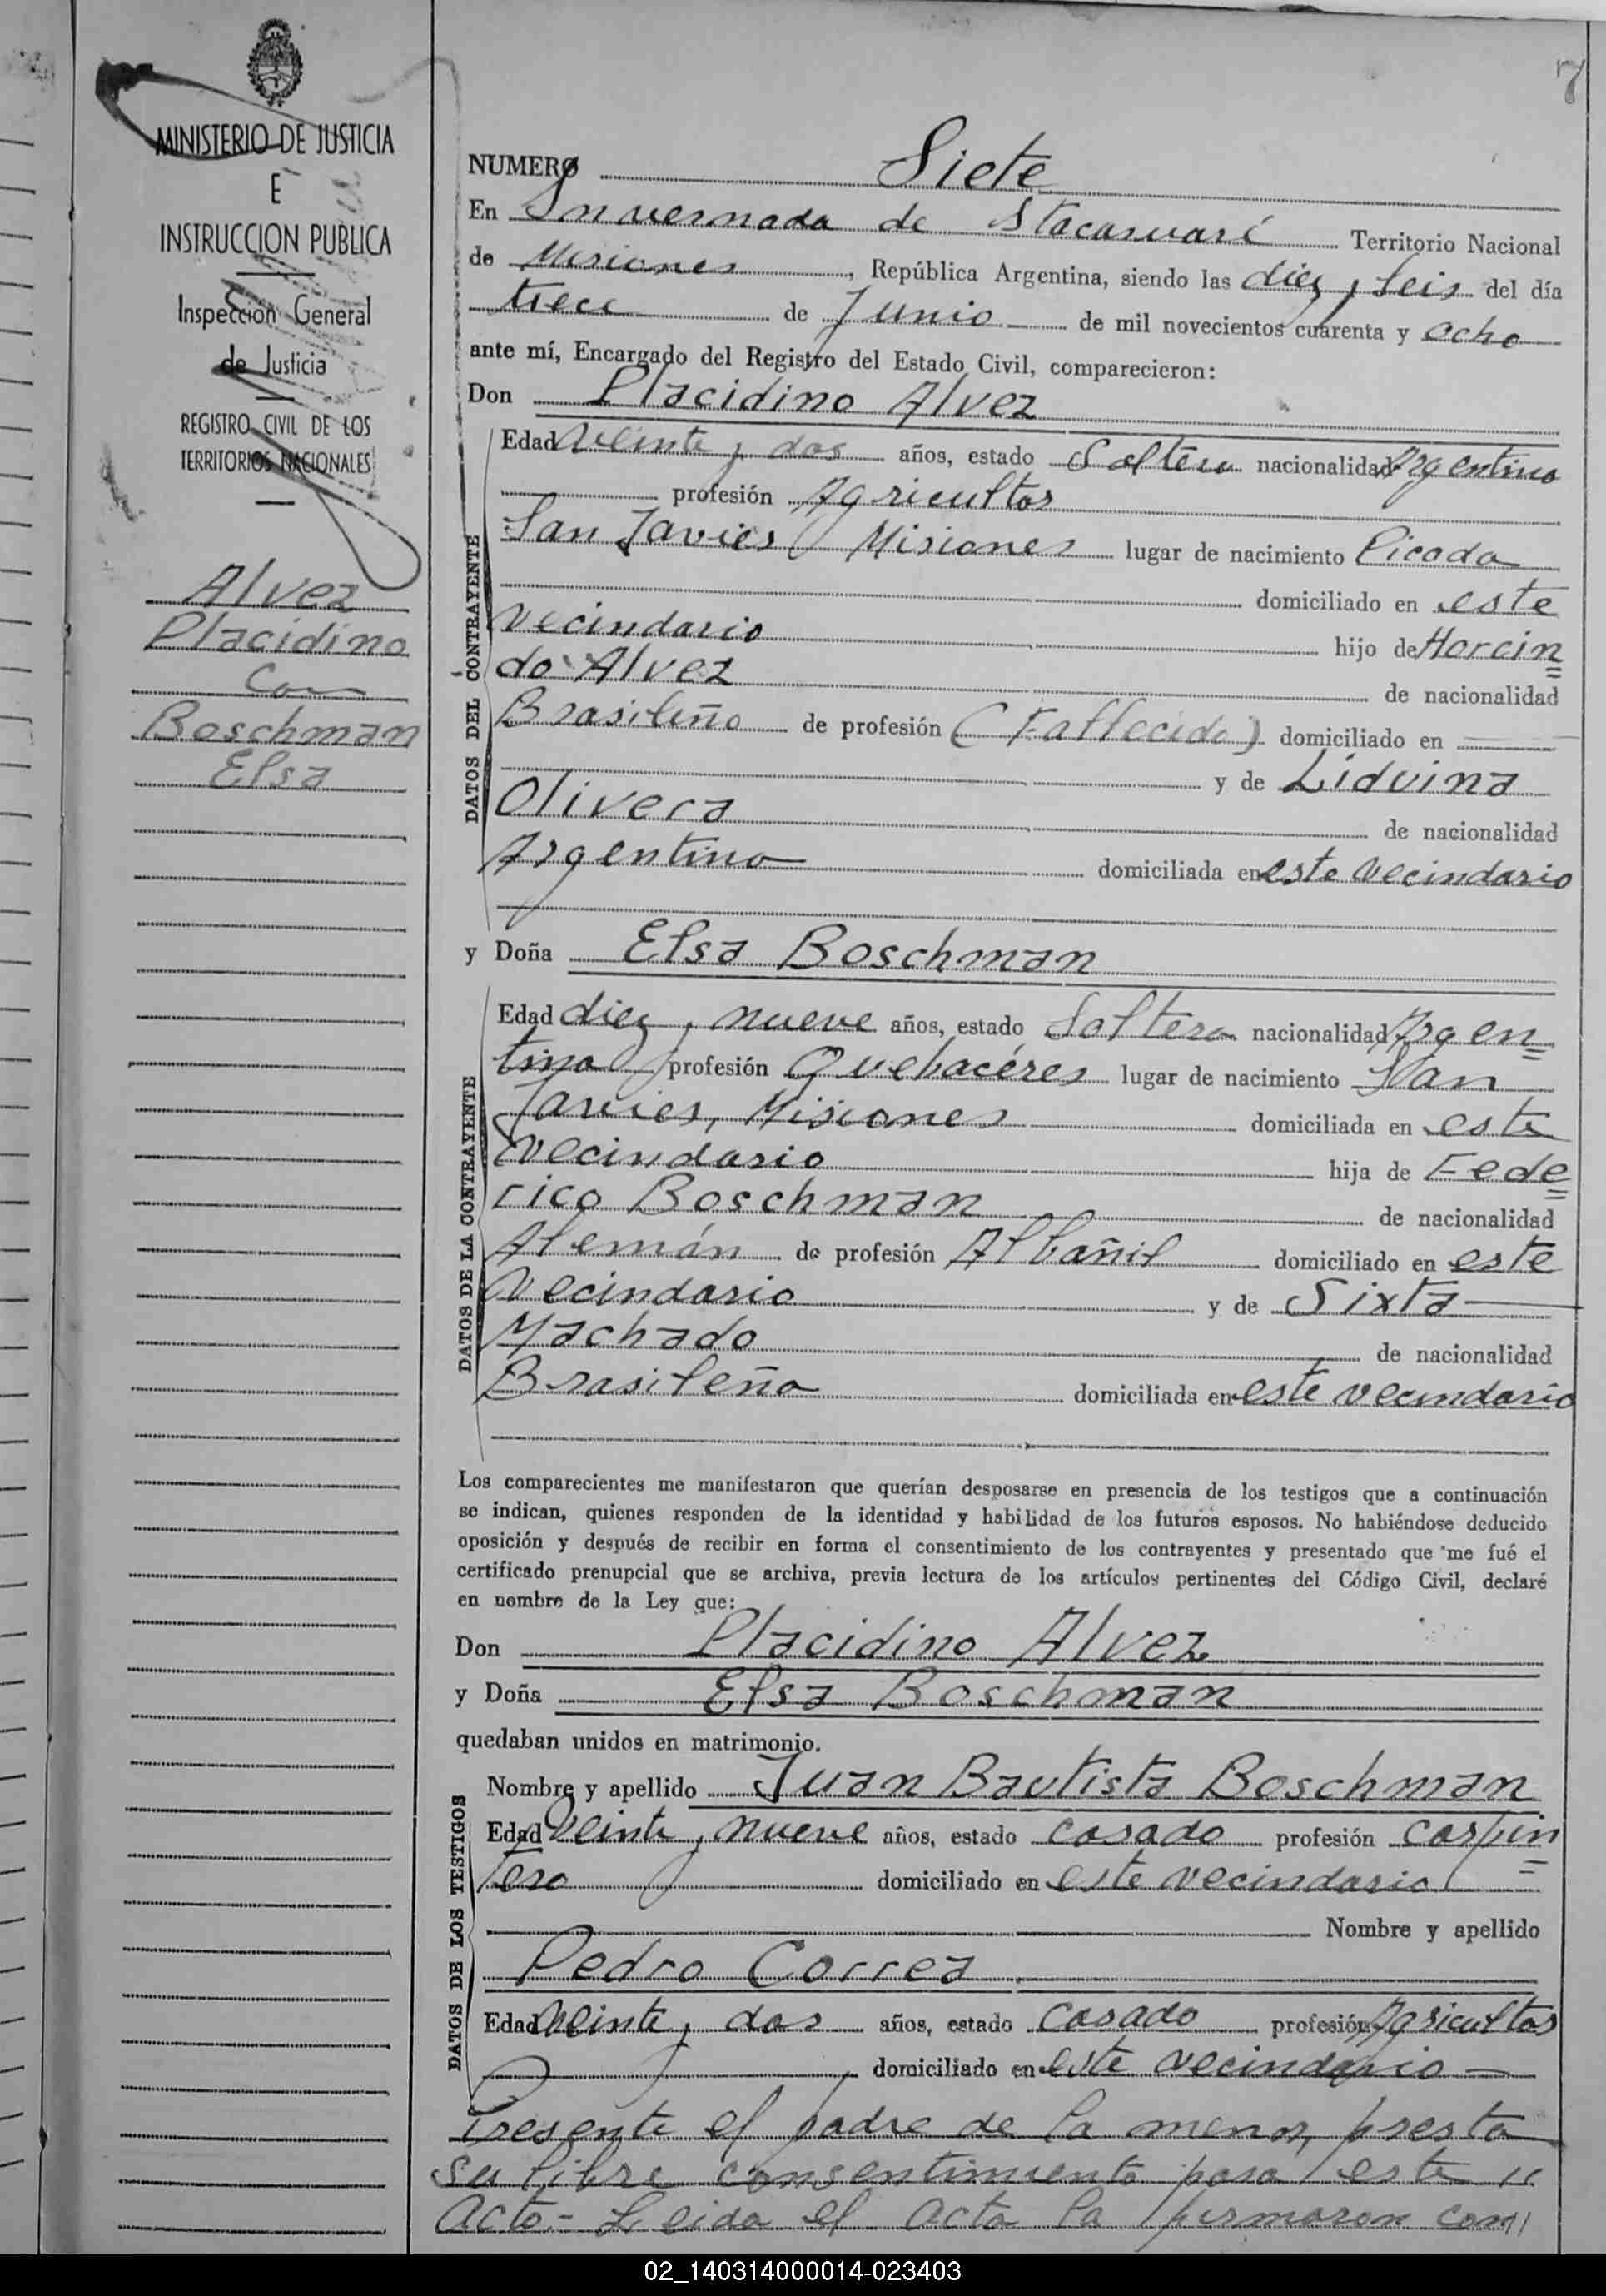 7
MINISTERIO DE JUSTICIA
E
INSTRUCCION PUBLICA
Inspección General
de Justicia
REGISTRO CIVIL DE LOS
TERRITORIOS NACIONALES
Alvez
Placidino
Con
Boschman
Elsa
NUMERO Siete
En Invernada de Itacaruaré Territorio Nacional
de Misiones, República Argentina, siendo las diez y seis del día
trece de Junio de mil novecientos cuarenta y ocho
ante mí, Encargado del Registro del Estado Civil, comparecieron:
Don Placidino Alvez
DATOS DEL CONTRAYENTE
Edad veinte y dos años, estado Soltero nacionalidad Argentino
profesión Agricultor
San Javier, Misiones lugar de nacimiento Picada
domiciliado en este
vecindario hijo de Horcin
do Alvez de nacionalidad
Brasileño de profesión (Fallecido) domiciliado en
y de Liduina
Olivera de nacionalidad
Argentina domiciliada en este vecindario
y Doña Elsa Boschman
DATOS DE LA CONTRAYENTE
Edad diez y nueve años, estado Soltera nacionalidad Argen
tina profesión Quehacéres lugar de nacimiento San
Javier, Misiones domiciliada en este
vecindario hija de Fede
rico Boschman de nacionalidad
Alemán de profesión Albañil domiciliado en este
vecindario y de Sixta
Machado de nacionalidad
Brasileña domiciliada en este vecindario
Los comparecientes me manifestaron que querían desposarse en presencia de los testigos que a continuación
se indican, quienes responden de la identidad y habilidad de los futuros esposos. No habiéndose deducido
oposición y después de recibir en forma el consentimiento de los contrayentes y presentado que me fué el
certificado prenupcial que se archiva, previa lectura de los artículos pertinentes del Código Civil, declaré
en nombre de la Ley que:
Don Placidino Alvez
y Doña Elsa Boschman
quedaban unidos en matrimonio.
DATOS DE LOS TESTIGOS
Nombre y apellido Juan Bautista Boschman
Edad veinte y nueve años, estado casado profesión carpin
tero domiciliado en este vecindario
Nombre y apellido
Pedro Correa
Edad veinte y dos años, estado casado profesión Agricultor
domiciliado en este vecindario
Presente el padre de la menor, presta
su libre consentimiento para este
Acto.- Leida el acta la firmaron con
02_140314000014-023403